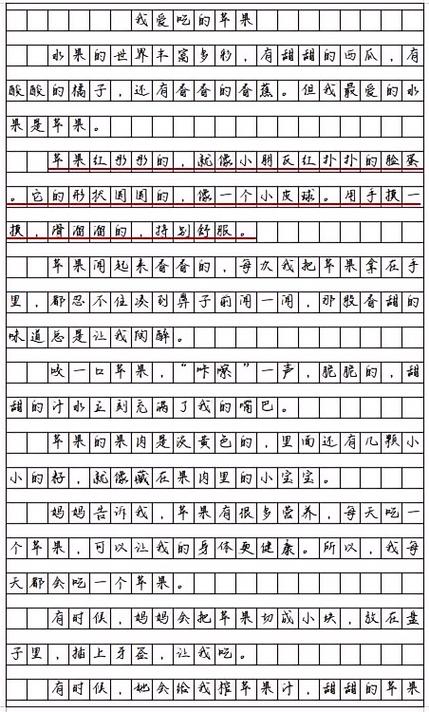 我爱吃的苹果
水果的世界丰富多彩，有甜甜的西瓜，有
酸酸的橘子，还有香香的香蕉。但我最爱的水
果是苹果。
苹果红彤彤的，就像小朋友红扑扑的脸蛋
。它的形状圆圆的，像一个小皮球。用手摸一
摸，滑溜溜的，特别舒服。
苹果闻起来香香的，每次我把苹果拿在手
里，都忍不住凑到鼻子前闻一闻，那股香甜的
味道总是让我陶醉。
咬一口苹果，“咔嚓”一声，脆脆的，甜
甜的汁水立刻充满了我的嘴巴。
苹果的果肉是淡黄色的，里面还有几颗小
小的籽，就像藏在果肉里的小宝宝。
妈妈告诉我，苹果有很多营养，每天吃一
个苹果，可以让我的身体更健康。所以，我每
天都会吃一个苹果。
有时候，妈妈会把苹果切成小块，放在盘
子里，插上牙签，让我吃。
有时候，她会给我榨苹果汁，甜甜的苹果